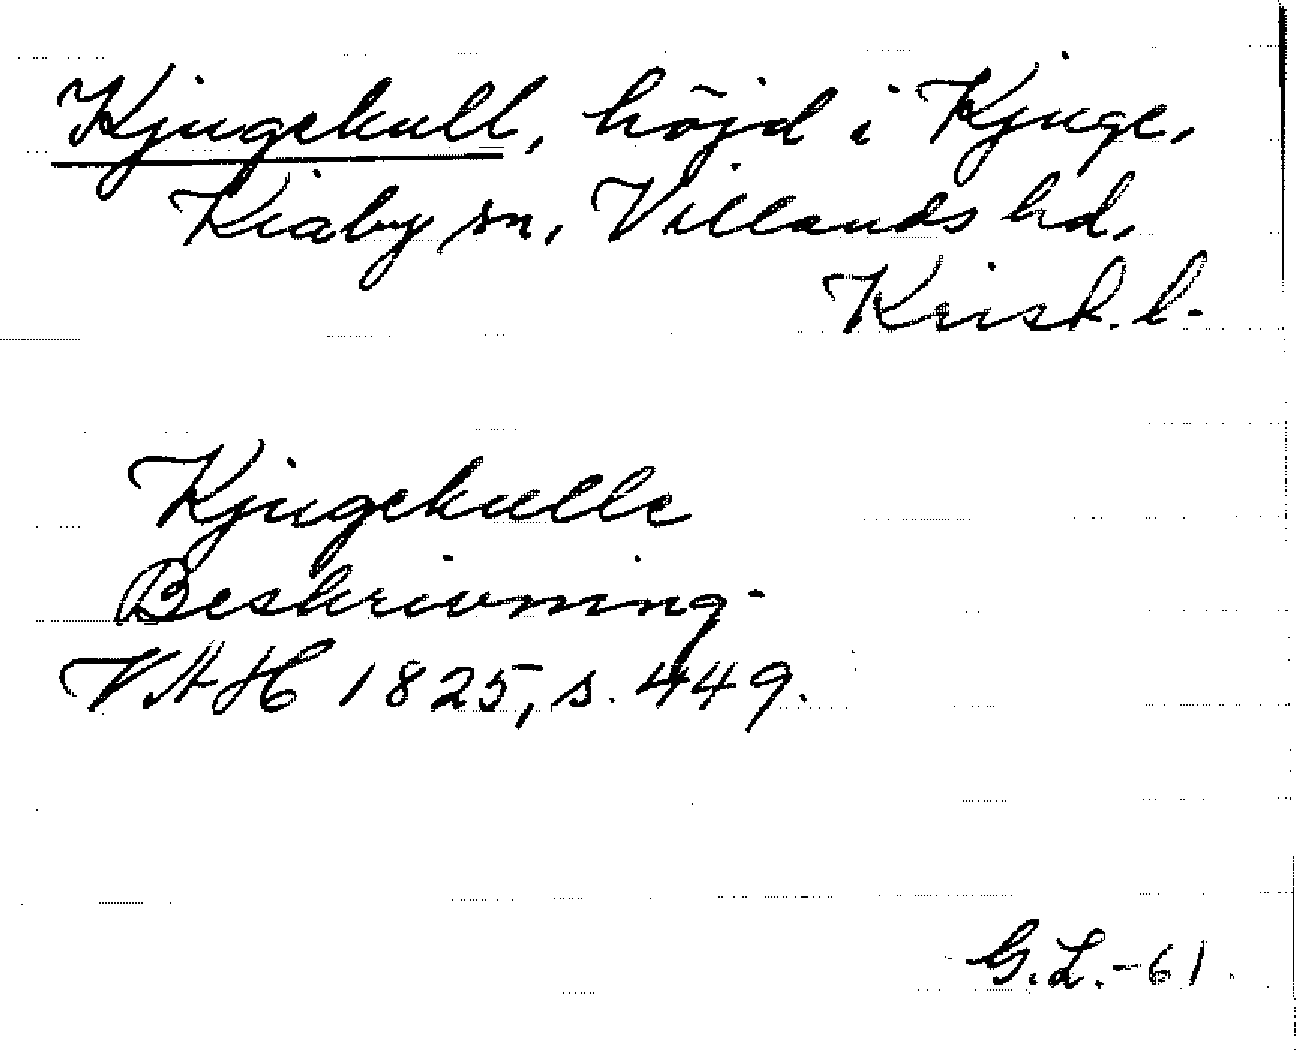 Kjugekull, höjd i Kjuge,
Kiaby sn, Villands hd,
Krist. l.
Kjugekulle
Beskrivning.
VAH 1825, s. 449.
G.L.-61.